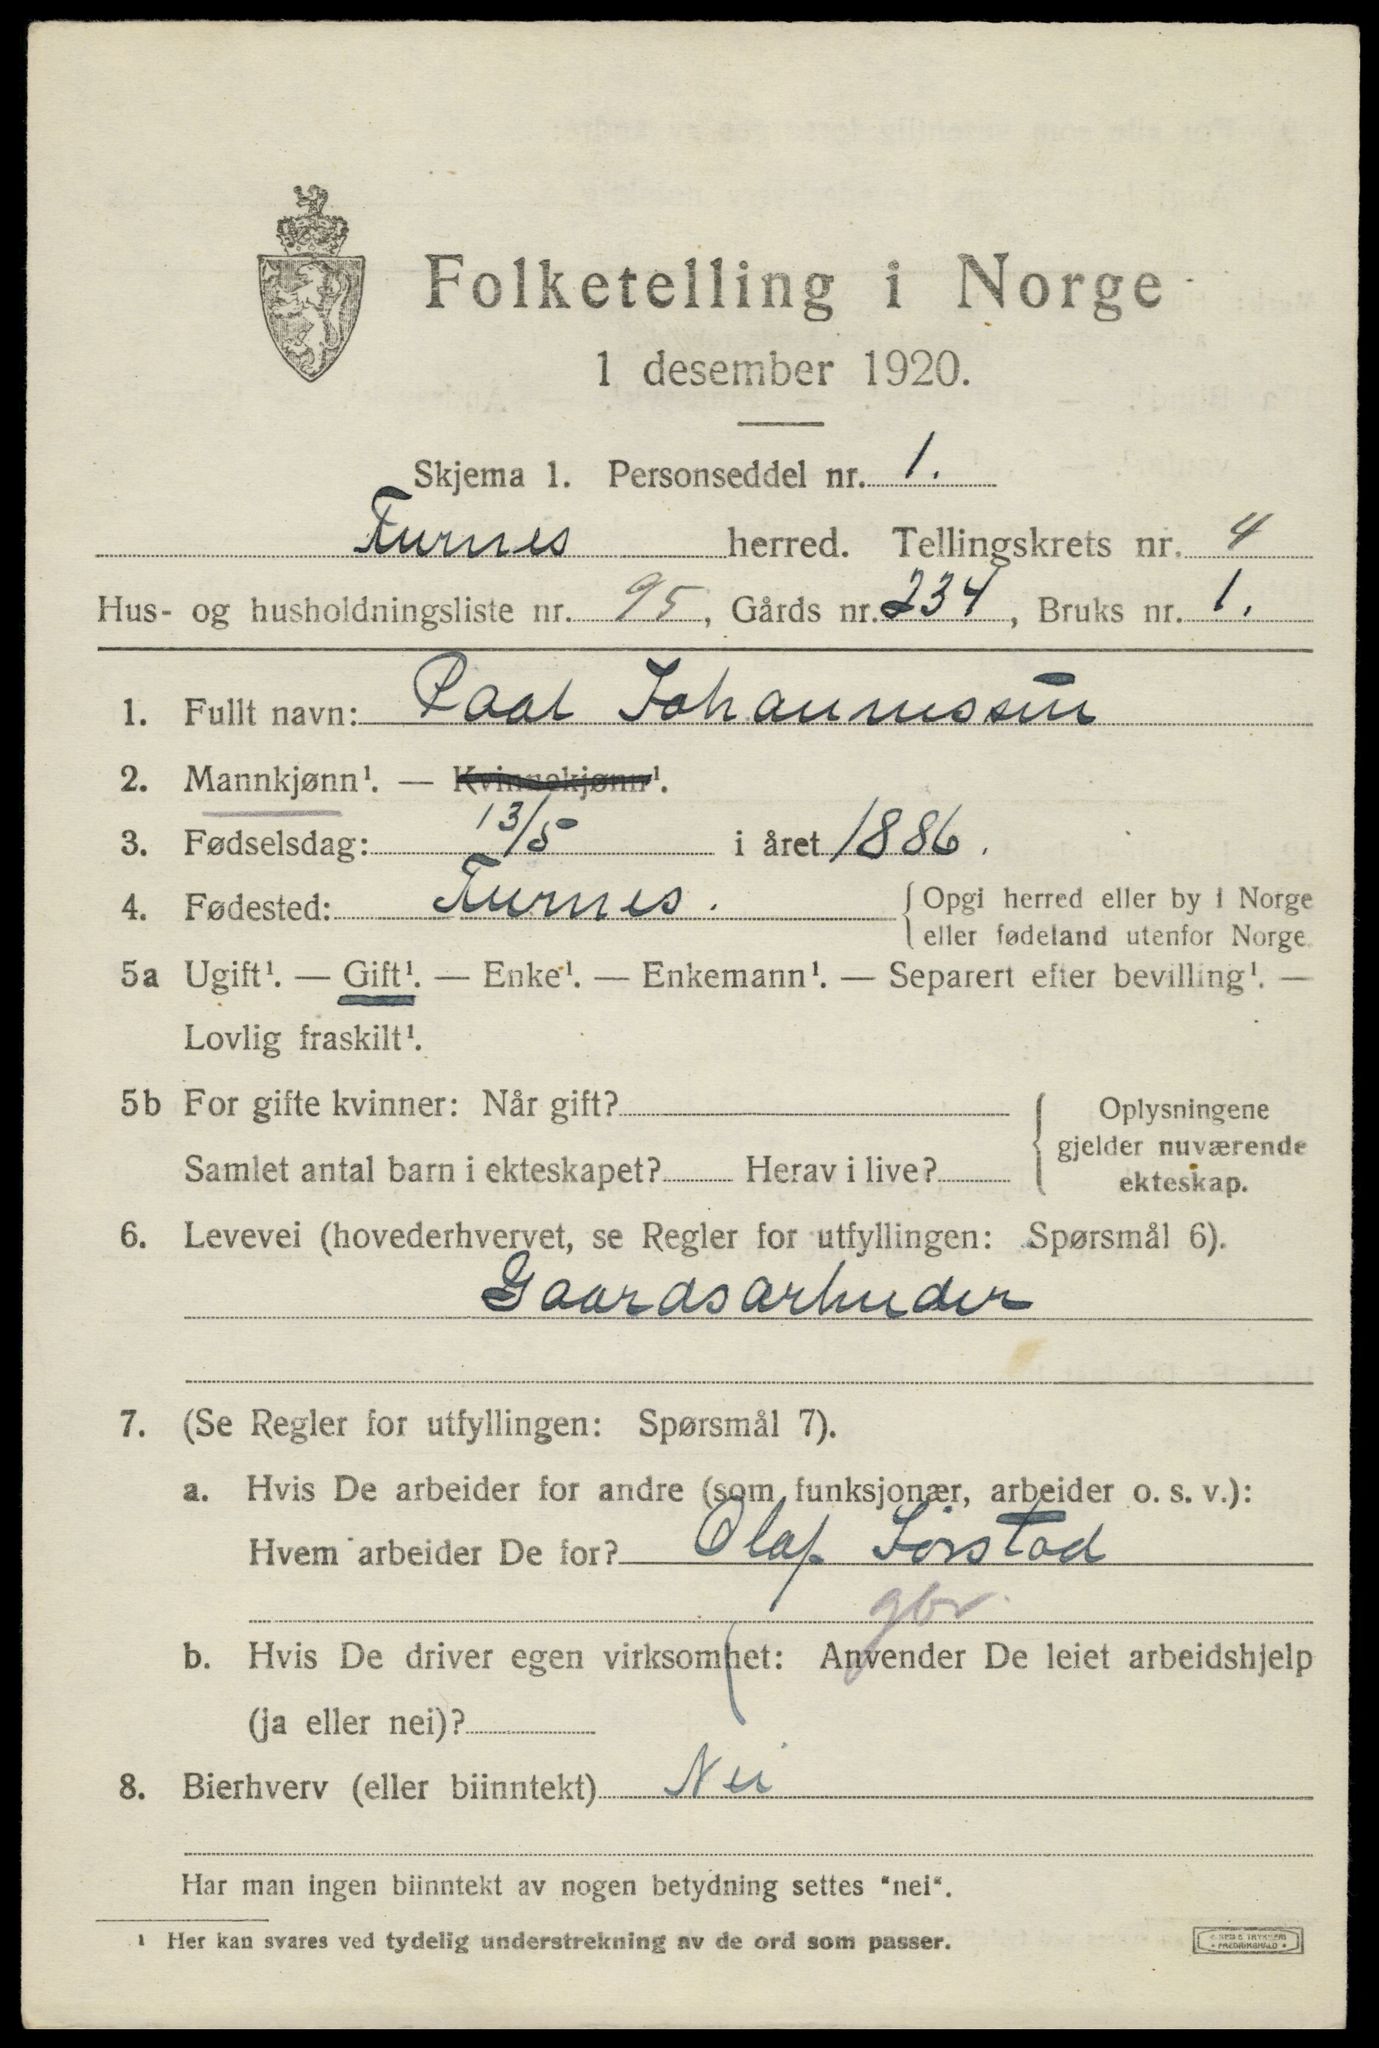 Folketelling i Norge
1 desember 1920.
Skjema 1. Personseddel nr. 1.
Furnes herred. Tellingskrets nr. 4
Hus- og husholdningsliste nr. 95, Gårds nr. 234, Bruks nr. 1.
1. Fullt navn: Paal Johannessen
2. Mannkjønn¹. — Kvinnekjønn¹.
3. Fødselsdag: 13/5 i året 1886.
4. Fødested: Furnes. { Opgi herred eller by i Norge
eller fødeland utenfor Norge.
5a Ugift¹. — Gift¹. — Enke¹. — Enkemann¹. — Separert efter bevilling¹. —
Lovlig fraskilt¹.
5b For gifte kvinner: Når gift? { Oplysningene
gjelder nuværende
Samlet antal barn i ekteskapet? Herav i live? ekteskap.
6. Levevei (hovederhvervet, se Regler for utfyllingen: Spørsmål 6).
Gaardsarbeider
7. (Se Regler for utfyllingen: Spørsmål 7).
a. Hvis De arbeider for andre (som funksjonær, arbeider o. s. v.):
Hvem arbeider De for? Olaf Sørstad
gbr.
b. Hvis De driver egen virksomhet: Anvender De leiet arbeidshjelp
(ja eller nei)?
8. Bierhverv (eller biinntekt) Nei
Har man ingen biinntekt av nogen betydning settes "nei".
¹ Her kan svares ved tydelig understrekning av de ord som passer.